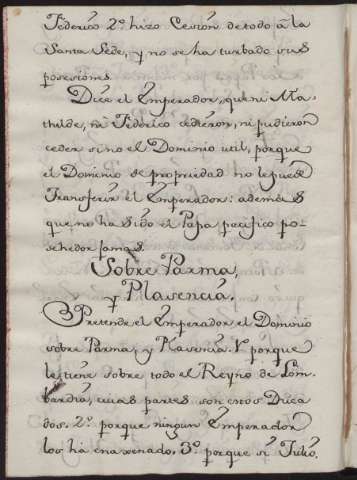 Federico 2.º hizo Cesión de todo â la
Santa Sede, y no se ha turbado sus
posesiones.
Dice el Emperador, que ni Ma-
thilde, ni Federico cedieron, ni pudieron
ceder sino el Dominio util, porque
el Dominio de propriedad no le puede
Transferir el Emperador: ademàs
que no ha sido el Papa pacifico po-
sehedor jamas.
Sobre Parma,
y Plasencia.
Pretende el Emperador el Dominio
sobre Parma, y Plasencia. 1º porque
le tiene sobre todo el Reyno de Lom-
bardia, cuias partes son estos Duca
dos. 2.º porque ningun Emperador
los há enaxenado. 3.º porque si Julio.